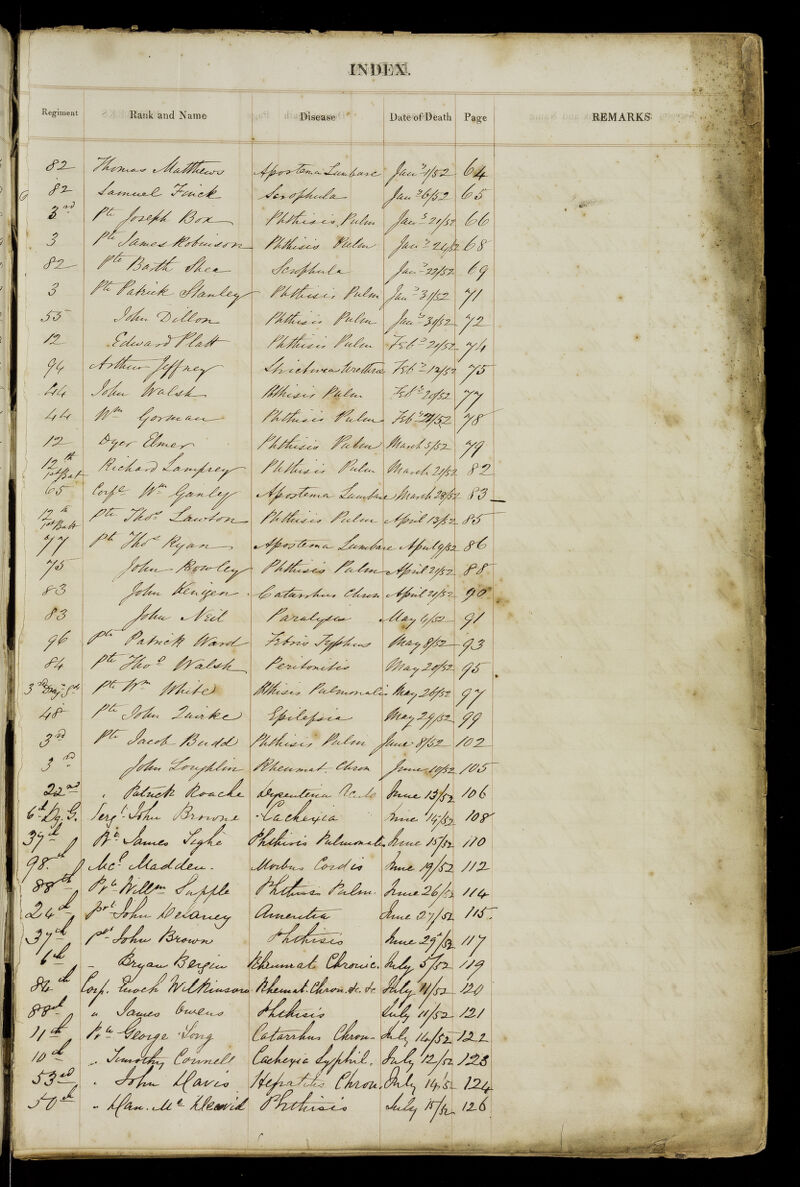 INDEX.
Regiment Rank and Name Disease Date of Death Page REMARKS
82 Thomas Matthews Apostema Lumbare Jany 1/52 64
82 Samuel Finck Scrophula Jany 6/52 65
3rd Pte Joseph Box Phthisis Pulm Jany 21/52 66
3 Pte James Robinson Phthisis Pulm Jany 68
82 Pte Barth Shea Scrophula Jany 22/52 69
3 Pte Patrick Stanley Phthisis Pulm Jany 31/52 71
55 John Dillon Phthisis Pulm Jany 31/52 72
12 Edward Platt Phthisis Pulm Feby 74
94 Arthur Jeffrey Strictura Urethra Feby 12/52 75
44 John Walsh Phthisis Pulm Feby 20/52 77
44 Wm Gorman Phthisis Pulm Feby 21/52 78
12 Dyer Elmer Phthisis Pulm March 5/52 79
12th 1st Bat Richard Lamprey Phthisis Pulm March 21/52 82
65 Corpl Wm Ganley Apostema Lumbare March 28/52 83
12th 1st Batt Pte Thos Lawton Phthisis Pulm April 13/52 85
77 Pte Thos Ryan Apostema Lumbare April 9/52 86
75 John Rowley Phthisis Pulm April 21/52 88
83 John Catarrhus Chron April 21/52 90
83 John Neil Paralysis May 6/52 91
96 Pte Patrick Ward Febris Typhus May 8/52 93
84 Pte Thos Walsh Peritonitis May 20/52 95
3rd Pte Wm White Phthisis Pulmonalis May 26/52 97
48 Pte John Quirke Epilepsia May 29/52 99
3rd Pte Jacob Budd Phthisis Pulm June 8/52 102
3rd John Loughlin Rheumat. Chron June 10/52 105
22nd " Patrick Roache Dysenteria Acute June 13/52 106
6th Dg. G. Sergt John Browne Cachexia June 14/52 108
37th Pte James Tighe Phthisis Pulmonalis June 15/52 110
98th Mcl Madden. Morbus Cordis June 19/52 112
88th Pvte Willm Supple Phthisis Pulm. June 26/52 114
24th Pvt John Delaney Amentia June 27/52 115.
37th Pvt John Brown Phthisis June 29/52 117
6th " Bryan Bergin Rheumat Chronic. July 5/52 119
84th Corp. Enoch Wilkinson Rheumat. Chron. &c. &c July 11/52 120
88th " James Owens Phthisis July 11/52 121
11th Pvte George Long Catarrhus Chron. July 14/52 122
10th " Timothy Connell Cachexia Syphil. July 12/52 123
53rd " John Davis Hepatitis Chron. July 14/52 124
50th " Dan. Mc Phthisis July 15/52 126